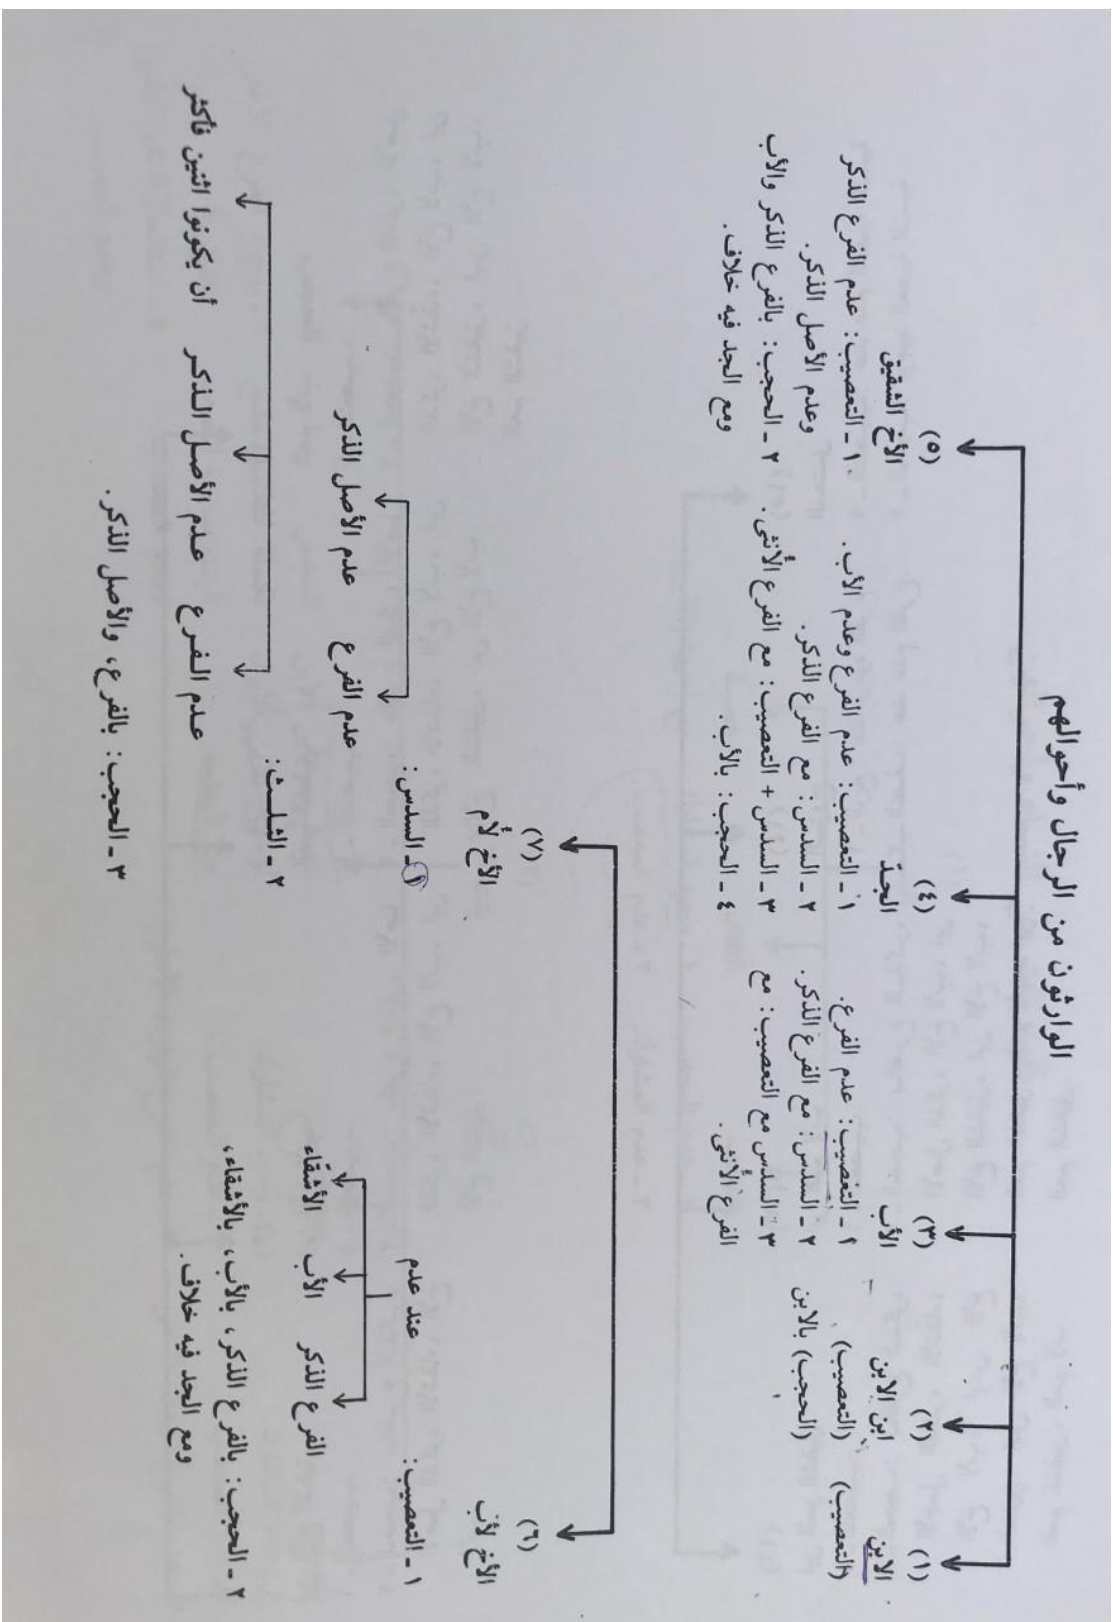 الوارثون من الرجال وأحوالهم
(١)
الابن
(التعصيب)
(٢)
ابن الابن
(التعصيب)
(الحجب) بالابن
(٣)
الأب
١ ـ التعصيب: عدم الفرع.
٢ ـ السدس: مع الفرع الذكر.
٣ ـ السدس مع التعصيب: مع
الفرع الأُنثى.
(٤)
الجد
١ ـ التعصيب: عدم الفرع وعدم الأب.
٢ ـ السدس: مع الفرع الذكر.
٣ ـ السدس + التعصيب: مع الفرع الأُنثى.
٤ ـ الحجب: بالأب.
(٥)
الأخ الشقيق
١ ـ التعصيب: عدم الفرع الذكر
وعدم الأصل الذكر.
٢ ـ الحجب: بالفرع الذكر والأب
ومع الجد فيه خلاف.
(٦)
الأخ لأب
١ ـ التعصيب:
عند عدم
الفرع الذكر الأب الأشقاء
٢ ـ الحجب: بالفرع الذكر، بالأب، بالأشقاء،
ومع الجد فيه خلاف.
(٧)
الأخ لأُم
١ ـ السدس:
عدم الفرع عدم الأصل الذكر
٢ ـ الثلث:
عدم الفرع عدم الأصل الذكر أن يكونوا اثنين فأكثر
٣ ـ الحجب: بالفرع، والأصل الذكر.